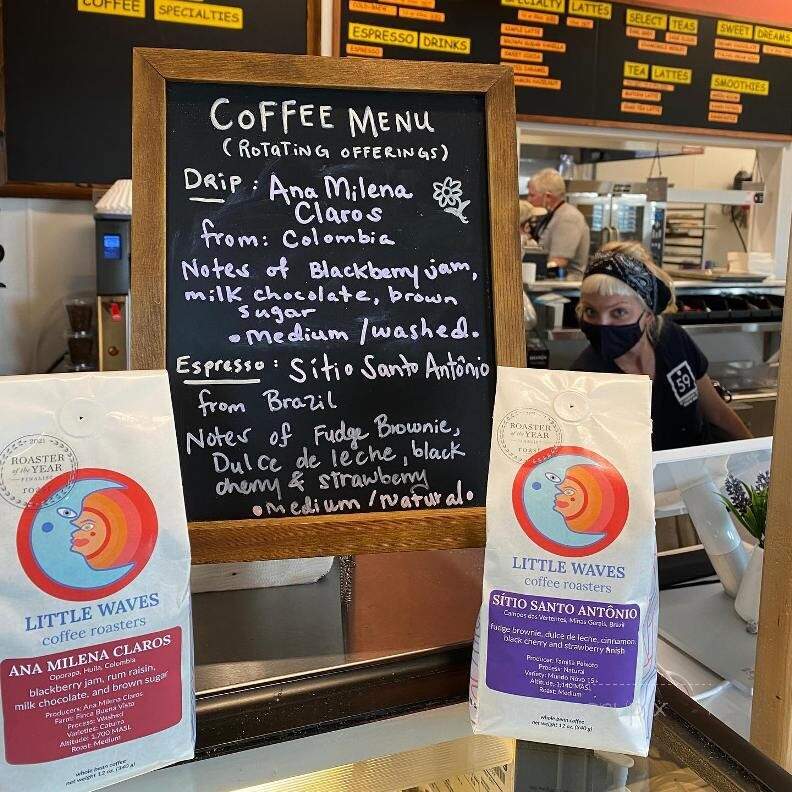 COFFEE
SPECIALTIES
ESPRESSO DRINKS
ESPRESSO
LATTES
SELECT TEAS
TEA LATTES
SWEET DREAMS
SMOOTHIES
COFFEE MENU
(ROTATING OFFERINGS)
DRIP: Ana Milena
Claros
from: Colombia
Notes of Blackberry jam,
milk chocolate, brown
sugar
• Medium /washed.
Espresso: Sítio Santo Antônio
from Brazil
Notes of Fudge Brownie,
Dulce de leche, black
cherry & strawberry
• medium /natural •
59
2021
ROASTER
of the YEAR
FINALIST
roast
LITTLE WAVES
coffee roasters
ANA MILENA CLAROS
Oporapa, Huila, Colombia
blackberry jam, rum raisin,
milk chocolate, and brown sugar
Producers: Ana Milena Claros
Farm: Finca Buena Vista
Process: Washed
Varieties: Caturra
Altitude: 1,700 MASL
Roast: Medium
whole bean coffee
net weight 12 oz. (340 g)
ROASTER
of the YEAR
LITTLE WAVES
coffee roasters
SÍTIO SANTO ANTÔNIO
Campos das Vertentes, Minas Gerais, Brazil
fudge brownie, dulce de leche, cinnamon,
black cherry and strawberry finish
Producer: Familia Peixoto
Process: Natural
Variety: Mundo Novo 15+
Altitude: 1,140 MASL
Roast: Medium
whole bean coffee
net weight 12 oz. (340 g)